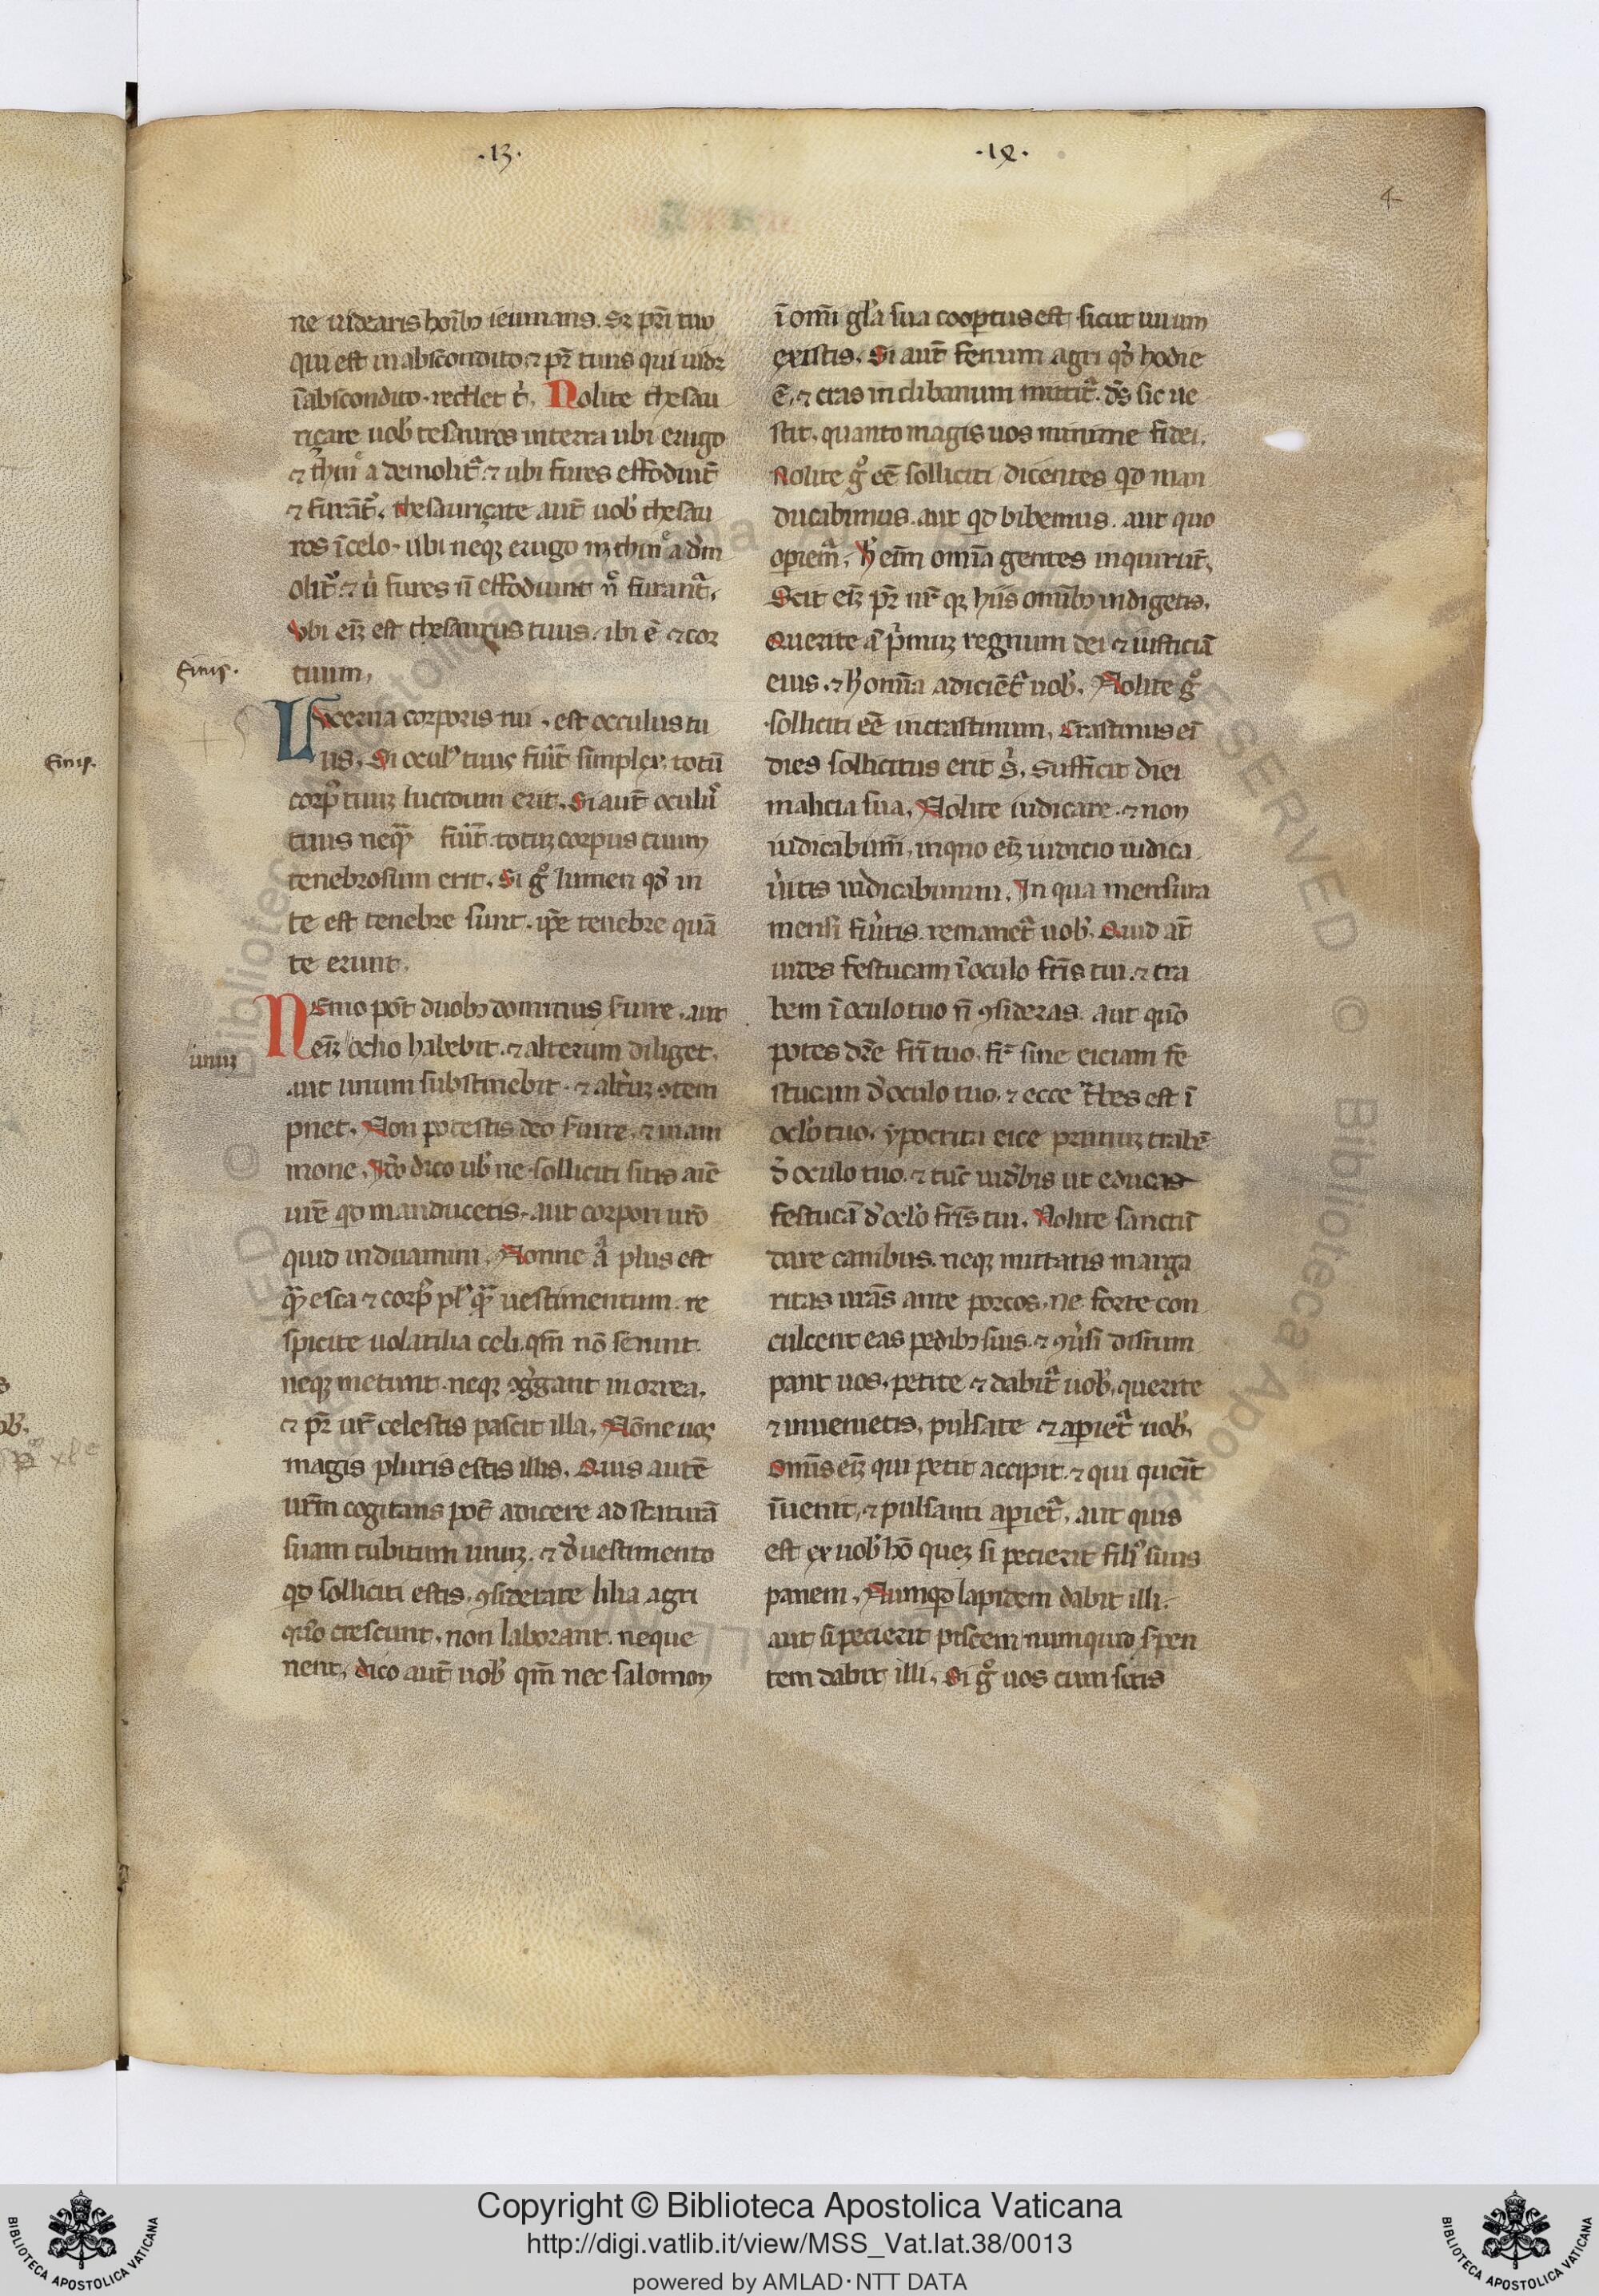 .13.
.14.
4
ne uidearis hoı̅b; ieiunans. S; pr̅i tuo
qui est in abscondito. ⁊ pr̅ tuus qui uid;
ı̅ abscondito. reddet t̉. Nolite thesau
riçare uob̉ tesauros in terra ubi erugo
⁊ thin̉ea demolit̉. ⁊ ubi fures effodiu̅t
⁊ fura̅t̉. thesauriçate aut̅ uob̉ thesau
ros ı̅ celo. ubi neq; erugo n; thin̉ea dem
olit̉. ⁊ ủ fures n̅ effodiunt n̉ furant̉.
Vbi ei̅; est thesaurus tuus. ibi e̅ ⁊ cor
finis.
tuum.
Lvcerna corporis tui. est occulus tu
us. Si ocul̉ tuus fu̅it simplex. totu̅
finis.
corp̉ tuu; lucidum erit. Si aut̅ oculủ
tuus neq̅ fu̅it. totu; corpus tuum
tenebrosum erit. Si g̉ lumen qd̉ in
te est tenebre sunt. ip̅e tenebre qua̅
te erunt.
Nemo pot̅ duob; dominus s̉uire. aut
unu;
ei̅; odio habebit. ⁊ alterum diliget.
aut unum substinebit. ⁊ alt̉u; ꝯtem
pnet. Non potestis deo s̉uire. ⁊ mam
mone. Jd̅o dico ub̉ ne solliciti sitis ai̅e
ur̅e qd manducetis. aut corpori ur̅o
quid induamini. Nonne a̅ plus est
q̅ esca ⁊ corp̉ pl̉ q̅ uestimentum. re
spicite uolatilia celi. qm̅ no̅ serunt.
neq; metunt. neq; ꝯg̉gant in orrea.
⁊ pr̅ ur̅ celestis pascit illa. No̅ne uos
magis pluris estis illis. Quis aute̅
ur̅m cogitans pot̅ adicere ad statura̅
suam cubitum unu;. ⁊ d̉ uestimento
qd solliciti estis. ꝯsiderate lilia agri
quo̅ crescunt. non laborant. neque
nent. dico aut̅ uob̉ qm̅ nec salomon
ı̅ omi̅ gl̉a sua coop̉tus est. sicut unum
existis. Si aut̅ fenum agri qd̉ hodie
e̅. ⁊ cras in clibanum mittit̉. ds̅ sic ue
stit. quanto magis uos minime fidei.
Nolite g̉ ee̅ solliciti dicentes qd man
ducabimus. aut qd bibemus. aut quo
op̉iem̉. h̉ eni̅m omı̅a gentes inquiru̅t.
Scit ei̅; pr̅ ur̅ q; hiis omı̅b; indigetis.
Querite a̅ p̉mu; regnum dei ⁊ iusticia̅
eius. ⁊ h̉ omı̅a adicie̅t̉ uob̉. Nolite g̉
solliciti ee̅ in crastinum. Crastinus ei̅
dies sollicitus erit s̉. sufficit diei
malicia sua. Nolite iudicare. ⁊ non
iudicabimi̅. in quo ei̅; iudicio iudica
ủitis iudicabimini. Jn qua mensura
mensi fủitis. remanet̉ uob̉. Quid at̅
uides festucam ı̅ oculo fr̅is tui. ⁊ tra
bem ı̅ oculo tuo n̅ ꝯsideras. aut quo̅
potes dr̅e fr̅i tuo. fr̅ sine eiciam fe
stucam d̉ oculo tuo. ⁊ ecce t̉bes est ı̅
ocl̉o tuo. ypocrita eice primu; trabe̅
d̉ oculo tuo. ⁊ tu̅c uid̉bis ut educas
festuca̅ d̉ ocl̉o fr̅is tui. Nolite sanctu̅
dare canibus. neq; mittatis marga
ritas ura̅s ante porcos. ne forte con
culcent eas pedib; suis. ⁊ ꝯủsi disrum
pant uos. petite ⁊ dabit̉ uob̉. querite
⁊ inuenietis. pulsate ⁊ ap̉iet̉ uob̉.
Omı̅s ei̅; qui petit accipit. ⁊ qui que̅it
ı̅uenit. ⁊ pulsanti ap̉iet̉. aut quis
est ex uob̉ ho̅ que; si pecierit filỉ suus
panem. Numqd lapidem dabit illi.
aut si pecierit piscem numquid s̉pen
tem dabit illi. Si g̉ uos cum sitis
Copyright © Biblioteca Apostolica Vaticana
http://digi.vatlib.it/view/MSS_Vat.lat.38/0013
powered by AMLAD·NTT DATA
BIBLIOTECA APOSTOLICA VATICANA
BIBLIOTECA APOSTOLICA VATICANA